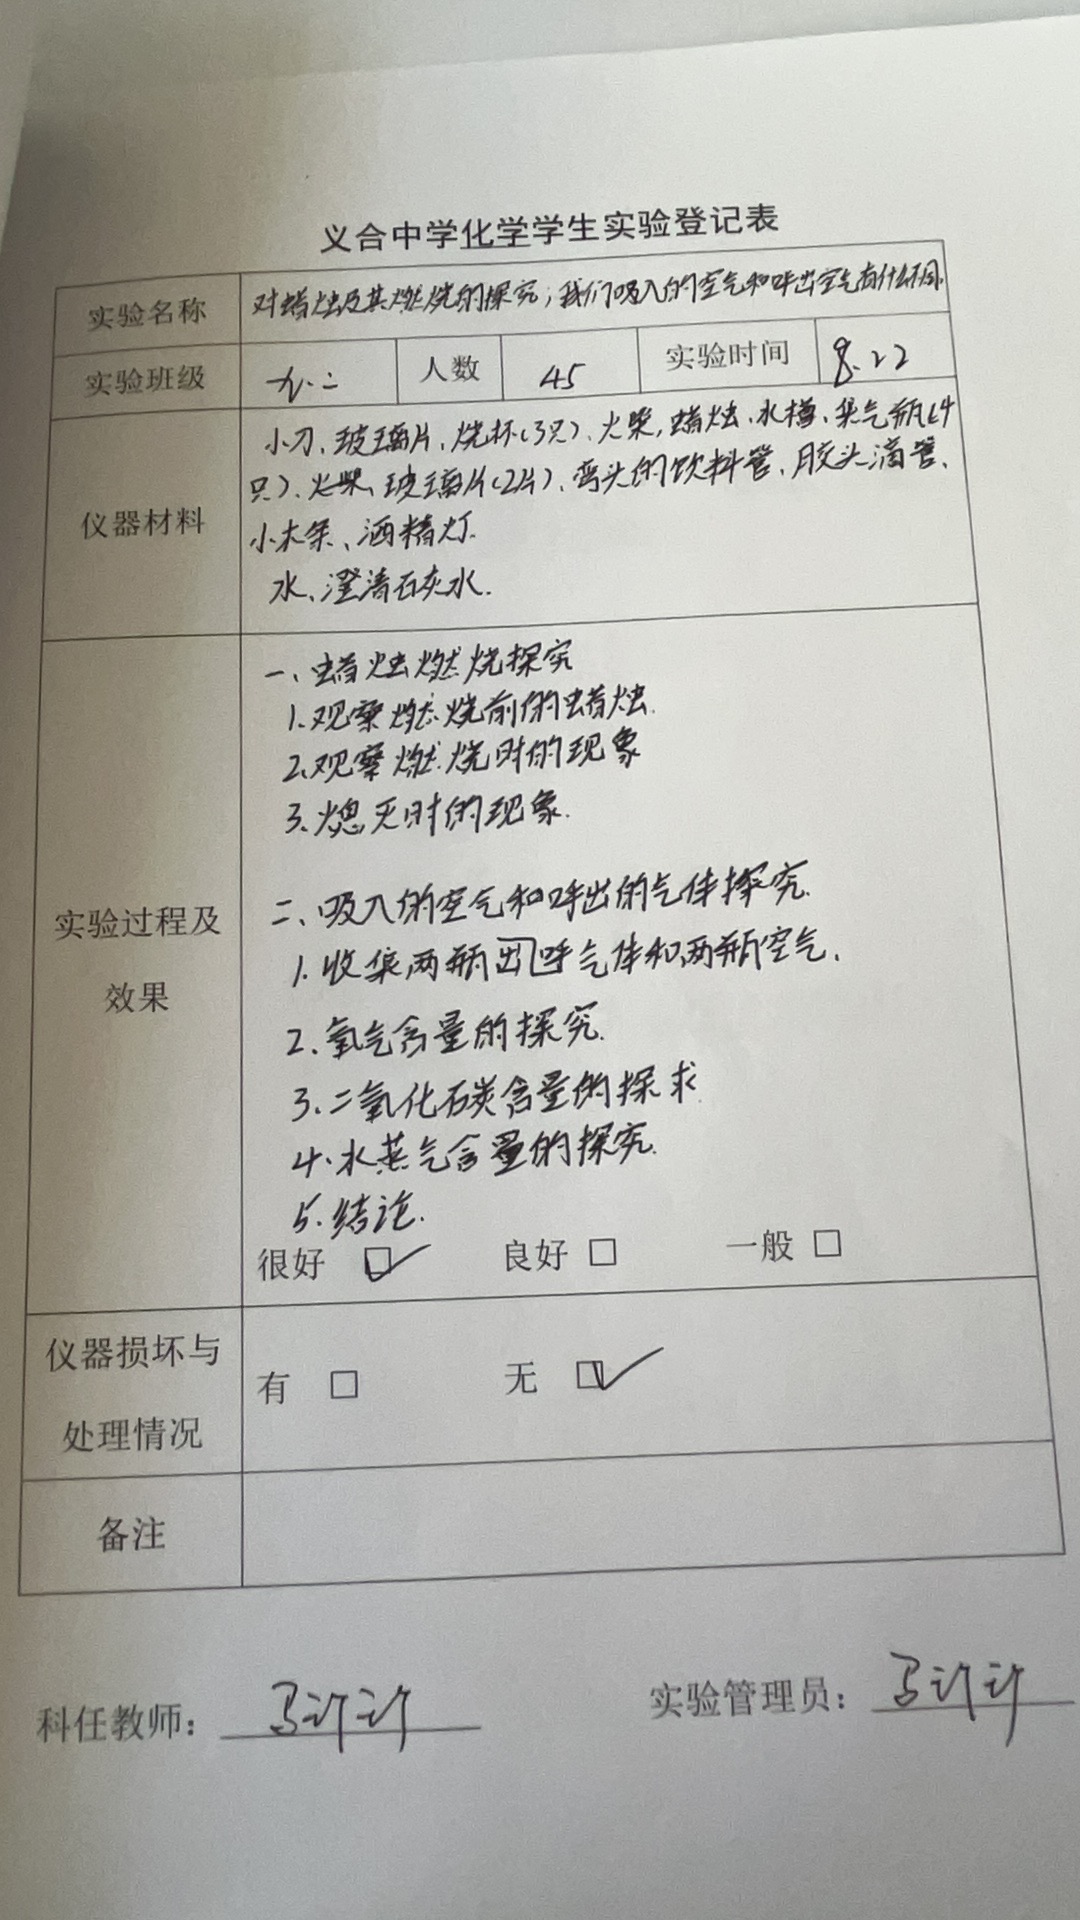 义合中学化学学生实验登记表
实验名称 对蜡烛及其燃烧的探究；我们吸入的空气和呼出空气有什么不同.
实验班级 九.二 人数 45 实验时间 8.22
小刀、玻璃片、烧杯(3只)、火柴,蜡烛、水槽、集气瓶(4
只)、火柴、玻璃片(2片)、弯头的饮料管、胶头滴管、
仪器材料
小木条、酒精灯.
水、澄清石灰水.
一、蜡烛燃烧探究
1.观察燃烧前的蜡烛.
2.观察燃烧时的现象
3.熄灭时的现象.
二、吸入的空气和呼出的气体探究.
实验过程及
效果
1.收集两瓶出呼气体和两瓶空气.
2.氧气含量的探究.
3.二氧化碳含量的探求
4.水蒸气含量的探究.
5.结论.
很好 ☑ 良好 □ 一般 □
仪器损坏与
处理情况
有 □ 无 ☑
备注
科任教师： 实验管理员：